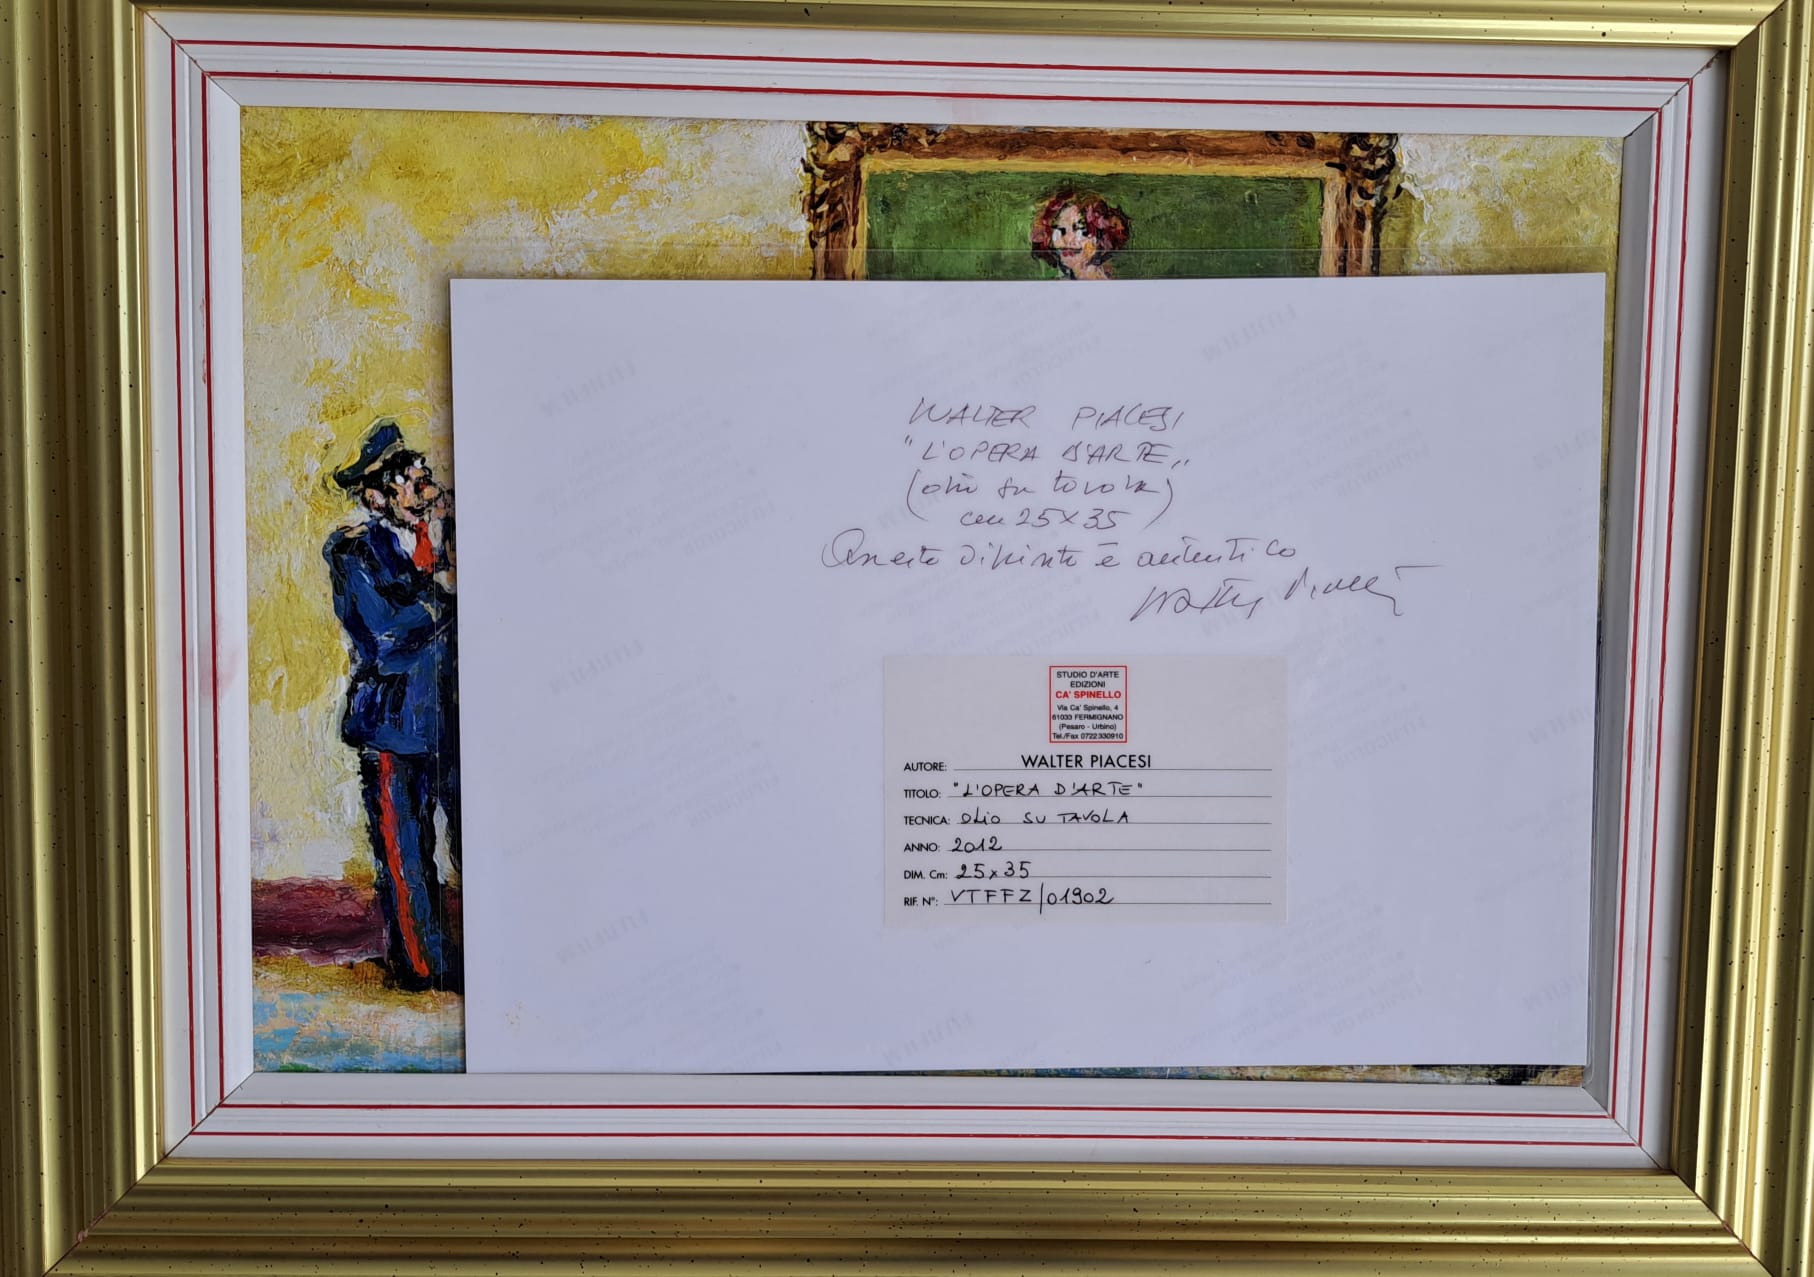 WALTER PIACESI
"L'OPERA D'ARTE„
(olio su tavola)
cm 25x35
Questo dipinto è autentico
Walter Piacesi
STUDIO D'ARTE
EDIZIONI
CA' SPINELLO
Via Ca' Spinello, 4
61033 FERMIGNANO
(Pesaro - Urbino)
Tel./Fax 0722 330910
AUTORE: WALTER PIACESI
TITOLO: "L'OPERA D'ARTE"
TECNICA: OLIO SU TAVOLA
ANNO: 2012
DIM. Cm: 25x35
RIF. N°: VTFFZ/01902